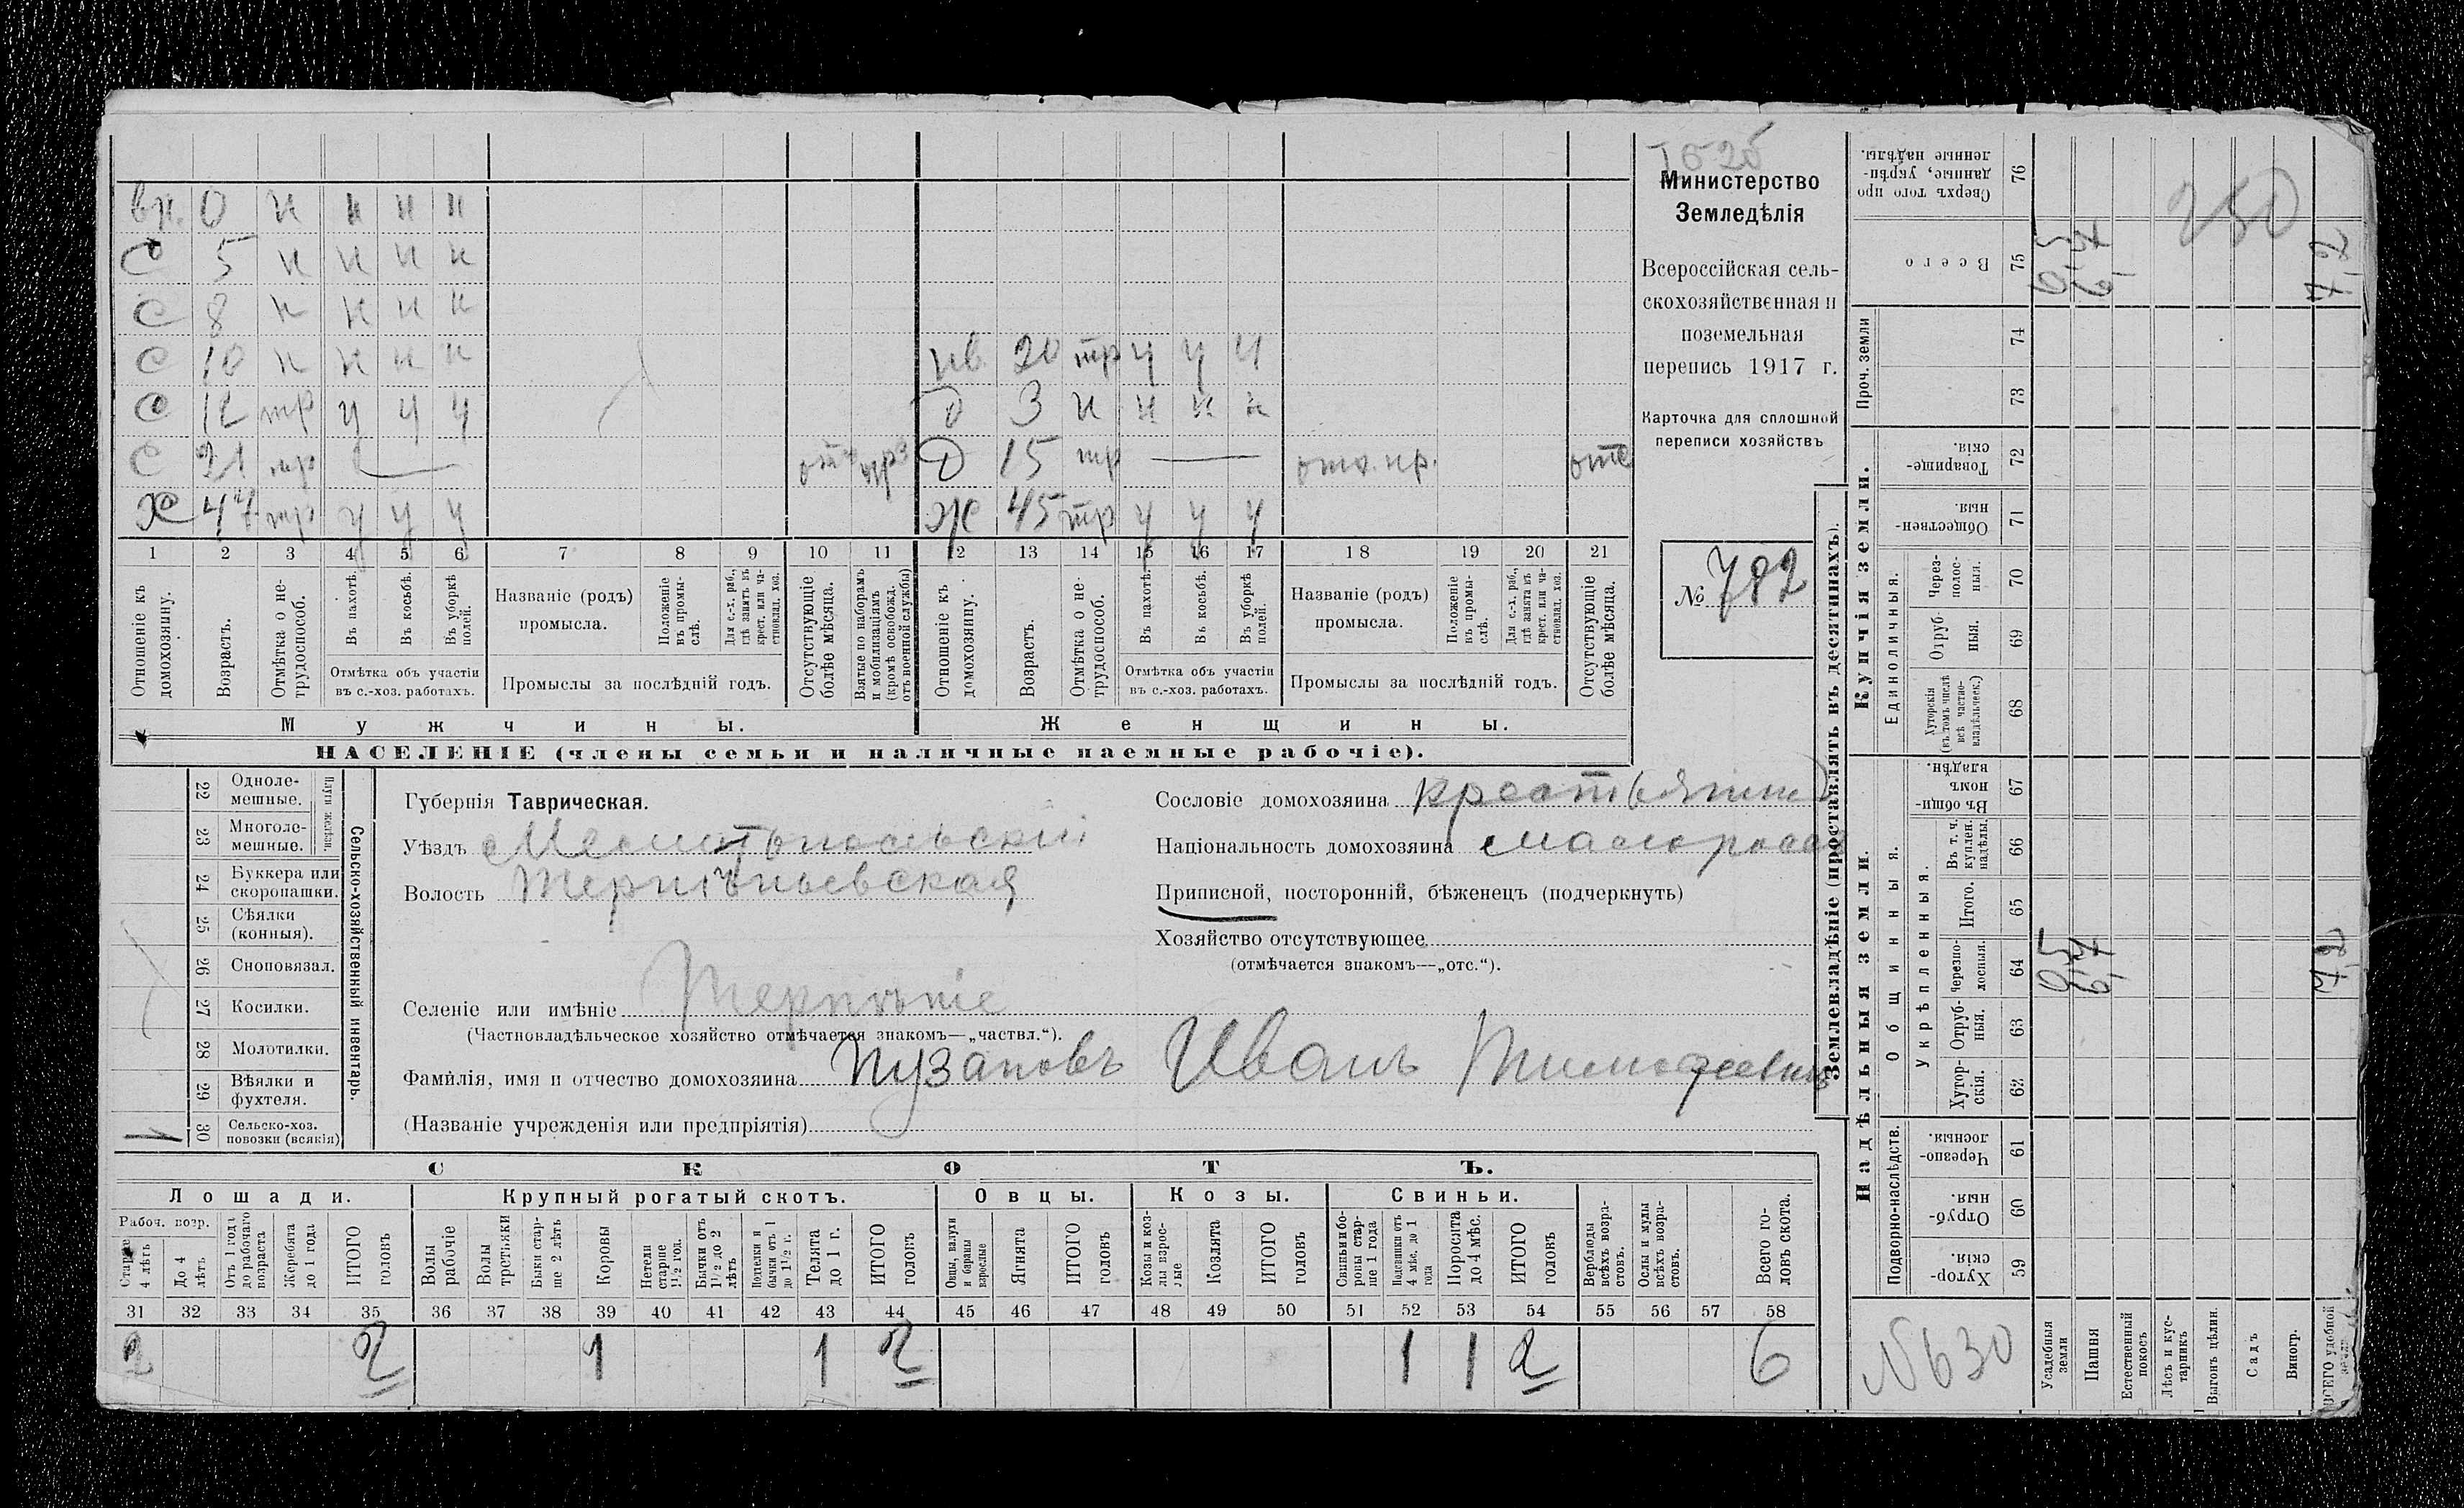 1525
Министерство
Земледѣлія
Всероссійская сель-
скохозяйственная и
поземельная
перепись 1917 г.
Карточка для сплошной
переписи хозяйствъ
№ 782
вн. 0 н н н н
С 5 н н н н
С 8 н н н н
С 10 н н н н
нв. 20 тр у у у
С 12 тр у у у
д 3 н н н н
С 21 тр —
Д 15 тр — отх. пр. отс
Х 47 тр у у у
Ж 45 тр у у у
1 2 3 4 5 6 7 8 9 10 11 12 13 14 15 16 17 18 19 20 21
Отношеніе къ домохозяину.
Возрастъ.
Отмѣтка о не-трудоспособ.
Въ пахотѣ.
Въ косьбѣ.
Въ уборкѣ полей.
Отмѣтка объ участіи въ с.-хоз. работахъ.
Названіе (родъ) промысла.
Положеніе въ промы-слѣ.
Для с.-х. раб., гдѣ занятъ въ крест. или ча-стновлад. хоз.
Промыслы за послѣдній годъ.
Отсутствующіе болѣе мѣсяца.
Взятые по наборамъ и мобилизаціямъ (кромѣ освобожд. отъ военной службы)
Отношеніе къ домохозяину.
Возрастъ.
Отмѣтка о не-трудоспособ.
Въ пахотѣ.
Въ косьбѣ.
Въ уборкѣ полей.
Отмѣтка объ участіи въ с.-хоз. работахъ.
Названіе (родъ) промысла.
Положеніе въ промы-слѣ.
Для с.-х. раб., гдѣ занята въ крест. или ча-стновлад. хоз.
Промыслы за послѣдній годъ.
Отсутствующіе болѣе мѣсяца.
Мужчины.
Женщины.
НАСЕЛЕНІЕ (члены семьи и наличные наемные рабочіе).
22 Одноле-мешные.
23 Многоле-мешные.
Плуги желѣзн.
24 Буккера или скоропашки.
25 Сѣялки (конныя).
26 Сноповязал.
27 Косилки.
28 Молотилки.
29 Вѣялки и фухтеля.
1 30 Сельско-хоз. повозки (всякія)
Сельско-хозяйственный инвентарь.
Губернія Таврическая.
Уѣздъ Мелитопольскій
Волость Терпѣньевская
Селеніе или имѣніе Терпѣніе
(Частновладѣльческое хозяйство отмѣчается знакомъ—„частвл.“).
Фамилія, имя и отчество домохозяина Пузановъ Иванъ Тимофеевичъ
(Названіе учрежденія или предпріятія)
Сословіе домохозяина крестьянинъ
Національность домохозяина малороссъ
Приписной, посторонній, бѣженецъ (подчеркнуть)
Хозяйство отсутствующее
(отмѣчается знакомъ—„отс.“).
СКОТЪ.
Лошади.
Крупный рогатый скотъ.
Овцы.
Козы.
Свиньи.
Рабоч. возр.
Старше 4 лѣтъ
До 4 лѣтъ
Отъ 1 года до рабочаго возраста
Жеребята до 1 года
ИТОГО головъ
Волы рабочіе
Волы третьяки
Быки стар-ше 2 лѣтъ
Коровы
Нетели старше 1½ год.
Бычки отъ 1½ до 2 лѣтъ
Нетелки и бычки отъ 1 до 1½ г.
Телята до 1 г.
ИТОГО головъ
Овцы, валухи и бараны взрослые
Ягнята
ИТОГО головъ
Козы и коз-лы взрос-лые
Козлята
ИТОГО головъ
Свиньи и бо-ровы стар-ше 1 года
Подсвинки отъ 4 мѣс. до 1 года
Поросята до 4 мѣс.
ИТОГО головъ
Верблюды всѣхъ возра-стовъ.
Ослы и мулы всѣхъ возра-стовъ.
Всего го-ловъ скота.
31 32 33 34 35 36 37 38 39 40 41 42 43 44 45 46 47 48 49 50 51 52 53 54 55 56 57 58
2 2 1 1 2 1 1 2 6
Землевладѣніе (проставлять въ десятинахъ).
Надѣльныя земли.
Купчія земли.
Проч. земли
Подворно-наслѣдств.
Общинныя.
Укрѣпленныя.
Единоличныя.
76 Сверхъ того про данные, укрѣп-ленные надѣлы.
75 Всего
74
73
72 Товарище-скія.
71 Обществен-ныя.
70 Через-полос-ныя.
69 Отруб-ныя.
68 Хуторскія (въ томъ числѣ всѣ частно-владѣльческ.)
67 Въ общи-номъ владѣн.
66 Въ т. ч. куплен. надѣлы.
65 Итого.
64 Черезпо-лосныя.
63 Отруб-ныя.
62 Хутор-скія.
61 Черезпо-лосныя.
60 Отруб-ныя.
59 Хутор-скія.
250
N630
Усадебныя земли
Пашня
Естественный покосъ
Лѣсъ и кус-тарникъ
Выгонъ цѣлин.
Садъ
Виногр.
ВСЕГО удобной